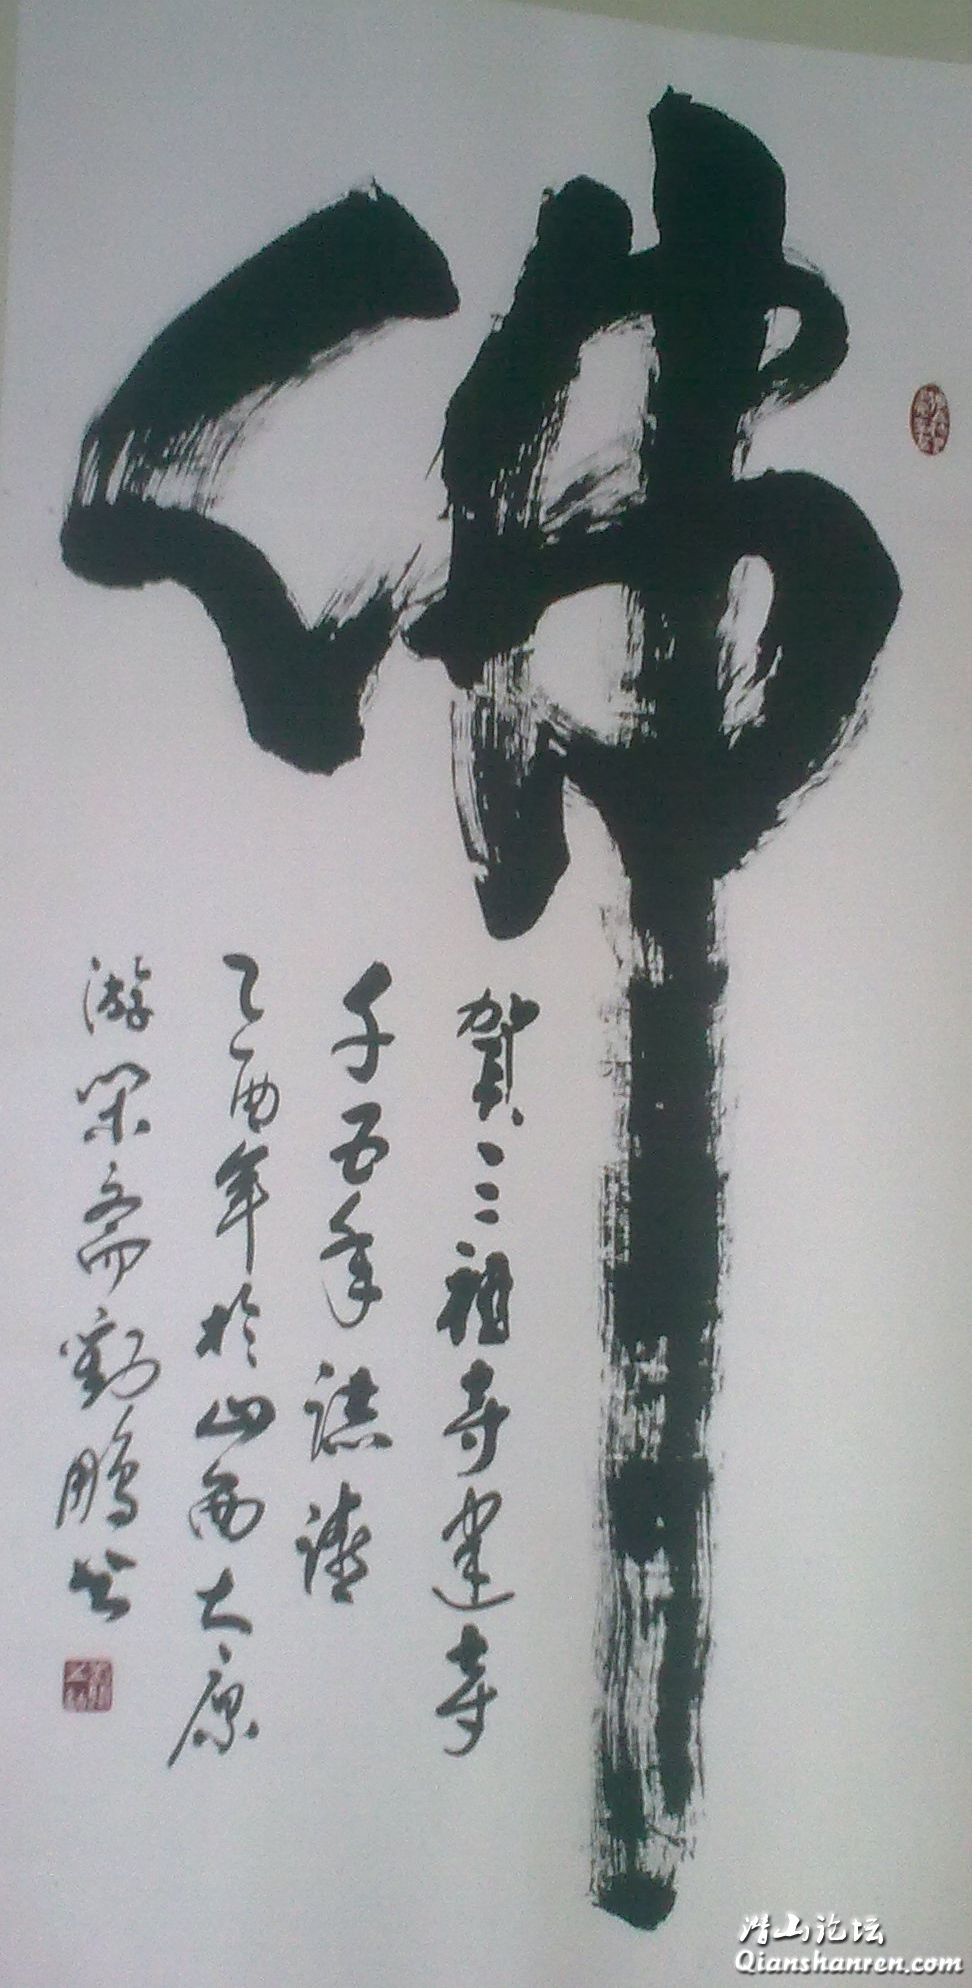 佛
賀三祖寺建寺
千五年誌禧
乙酉年於山西太原
游闲斋劉鵬书
潜山论坛
Qianshanren.com